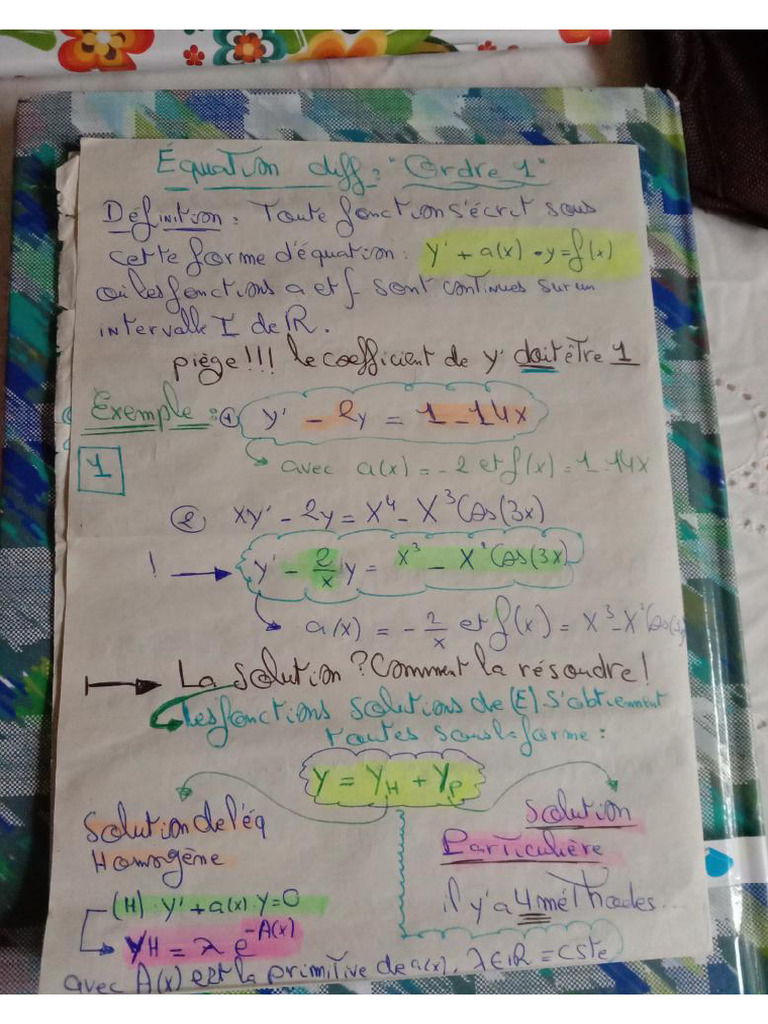 Équation diff: "Ordre 1"
Définition: Toute fonction s'écrit sous
cette forme d'équation: y' + a(x) • y = f(x)
où les fonctions a et f sont continues sur un
intervalle I de ℝ.
piège!!! le coefficient de y' doit être 1
Exemple: ① y' - 2y = 1 - 14x
1
avec a(x) = -2 et f(x) = 1-14x
② xy' - 2y = x⁴ - x³cos(3x)
! → y' - 2/x y = x³ - x²cos(3x)
a(x) = - 2/x et f(x) = x³ - x²cos(3x)
La solution? Comment la résoudre!
Les fonctions solutions de (E) s'obtiennent
toutes sous forme:
y = yH + yp
Solution de l'éq
Homogène
(H) y' + a(x) y = 0
yH = λ e^-A(x)
Solution
Particulière
il y'a 4 méthodes...
avec A(x) est la primitive de a(x). λ∈ℝ = cste